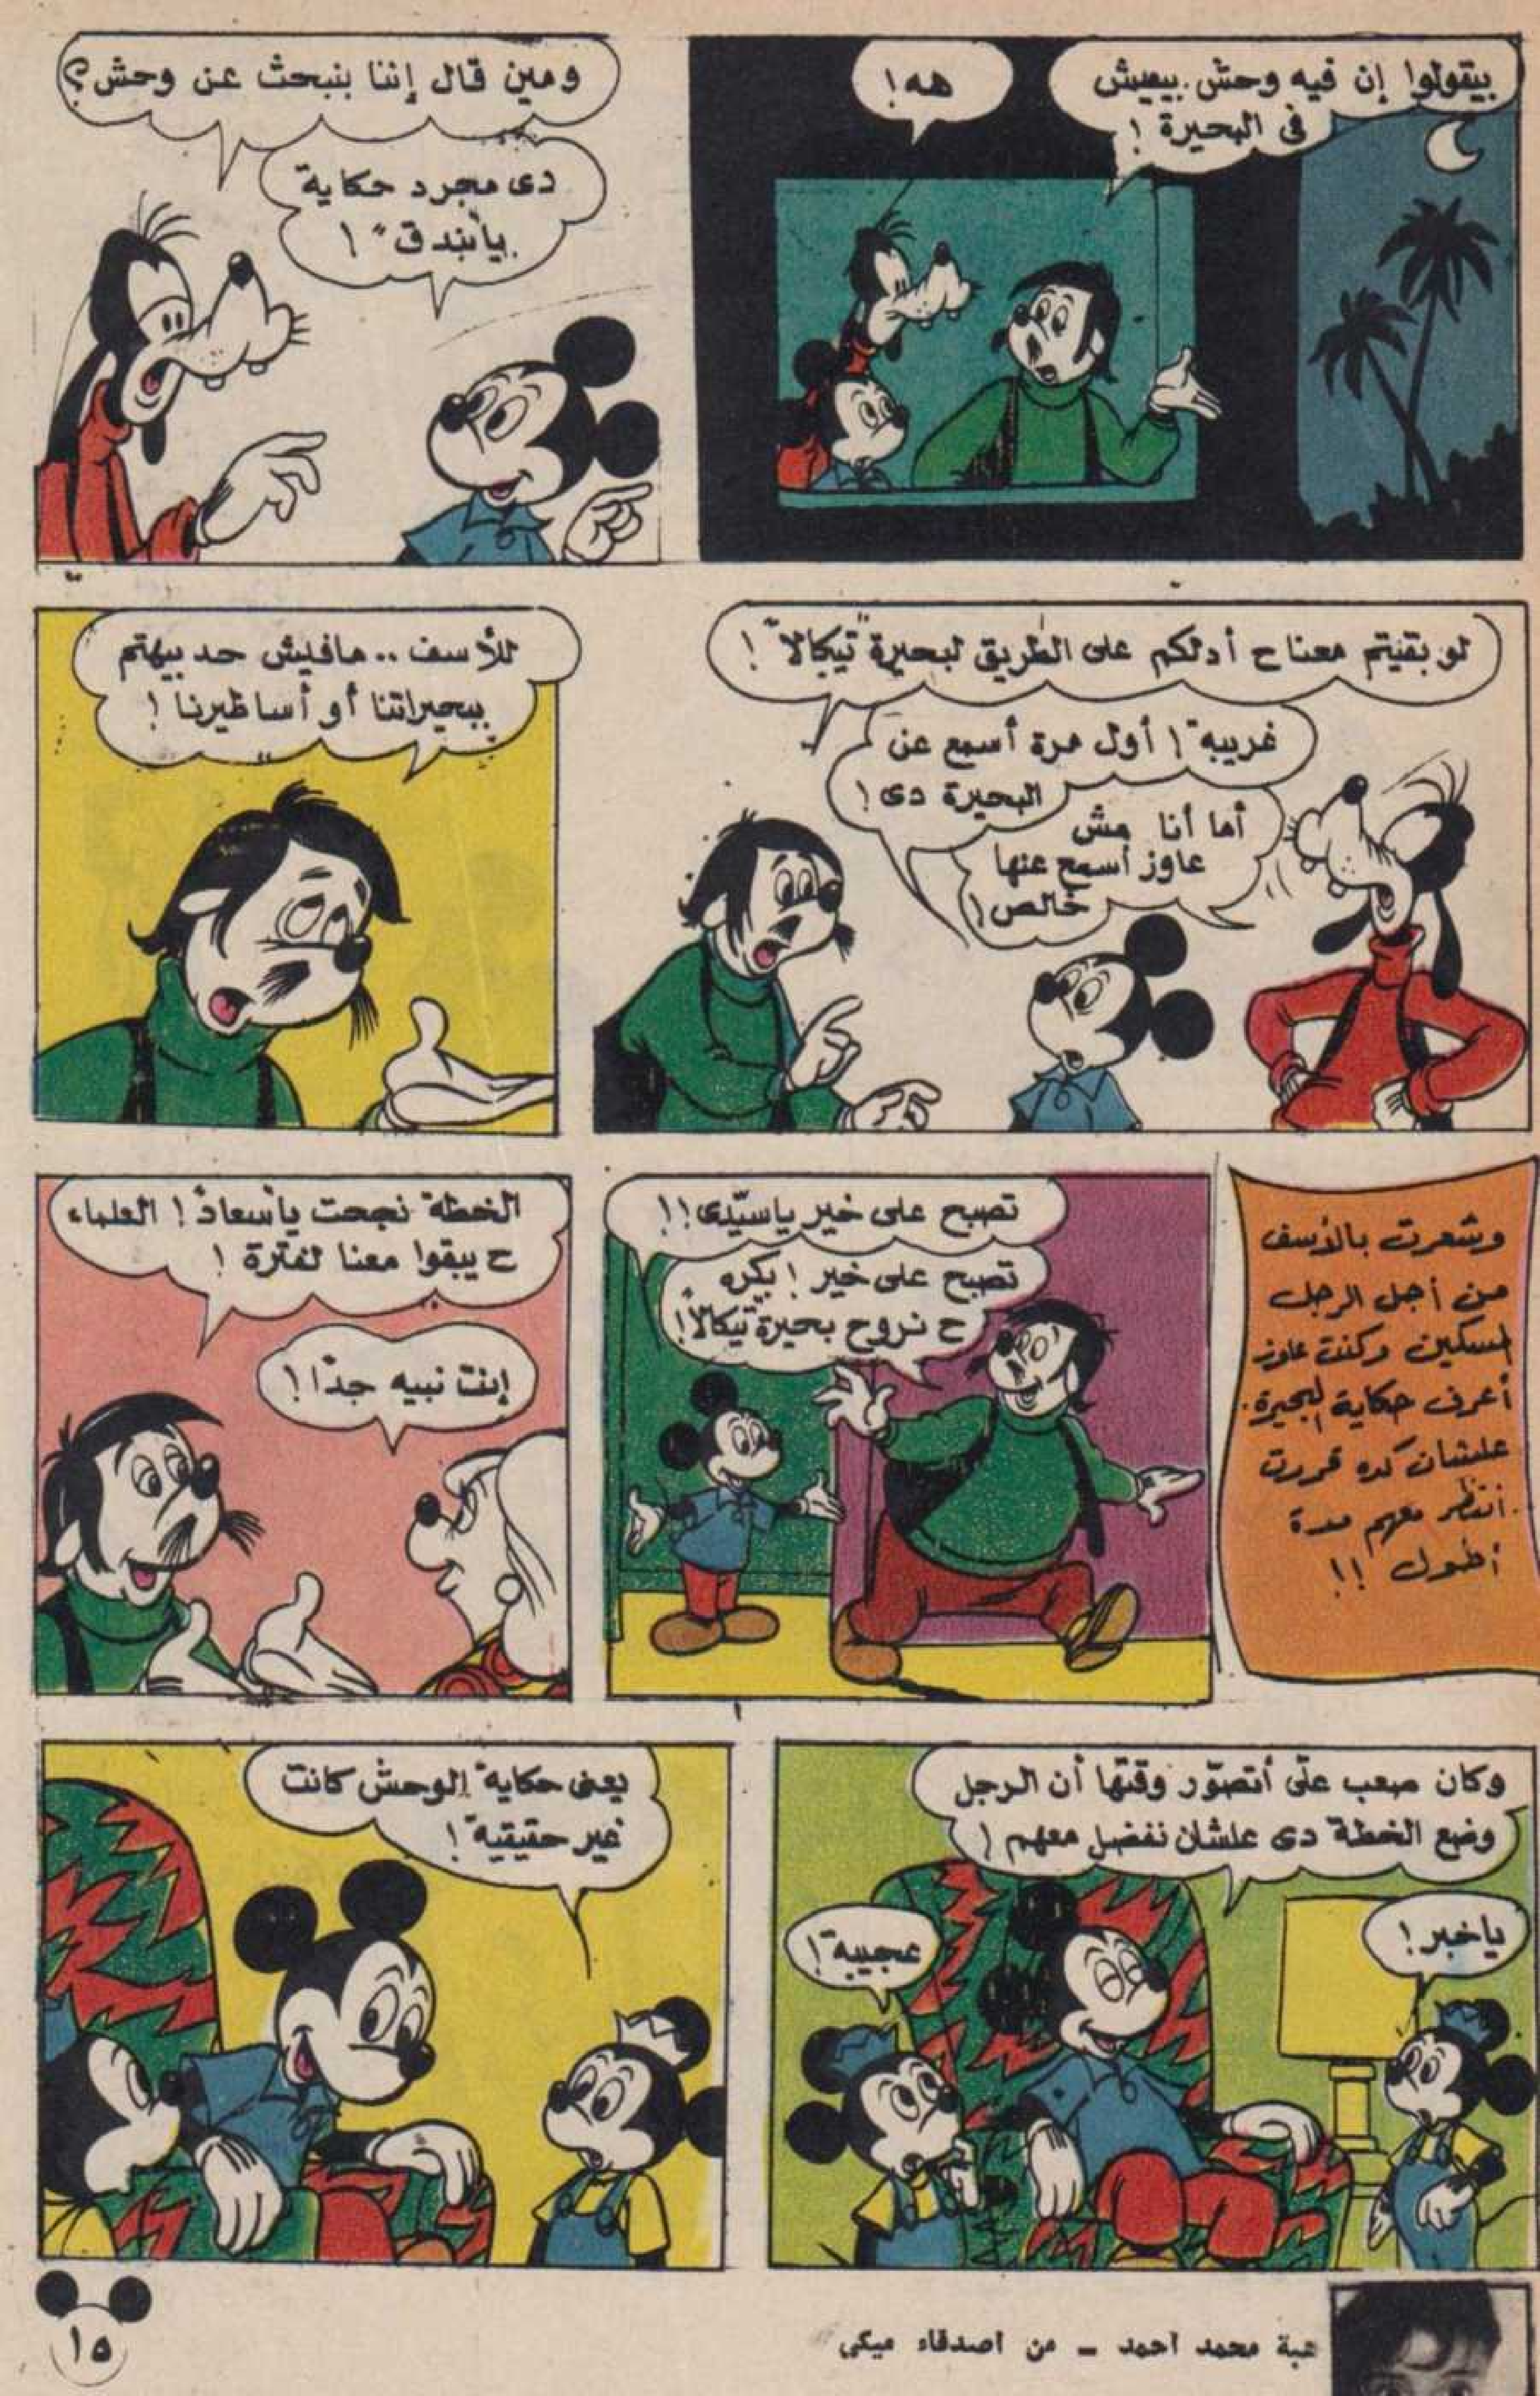 بيقولوا إن فيه وحش بيعيش
فى البحيرة !
هه !
ومين قال إننا بنبحث عن وحش ؟
دى مجرد حكاية
يا "بندق" !
لو بقيتم معنا ح أدلكم على الطريق لبحيرة "تيكالا" !
غريبة ! أول مرة أسمع عن
البحيرة دى !
أما أنا مش
عاوز أسمع عنها
خالص !
للأسف .. مافيش حد بيهتم
ببحيراتنا أو أساطيرنا !
وشعرت بالأسف
من أجل الرجل
المسكين وكنت عاوز
أعرف حكاية البحيرة .
علشان كده قررت
أنتظر معهم مدة
أطول !!
تصبح على خير ياسيّدى !!
تصبح على خير ! بكره
ح نروح بحيرة "تيكالا" !
الخطة نجحت يا "سعاد" ! العلماء
ح يبقوا معنا لفترة !
إنت نبيه جدًا !
وكان صعب علىّ أتصوّر وقتها أن الرجل
وضع الخطة دى علشان نفضل معهم !
ياخبر !
عجيبة !
يعنى حكاية الوحش كانت
غير حقيقية !
هبة محمد أحمد - من أصدقاء ميكى
١٥